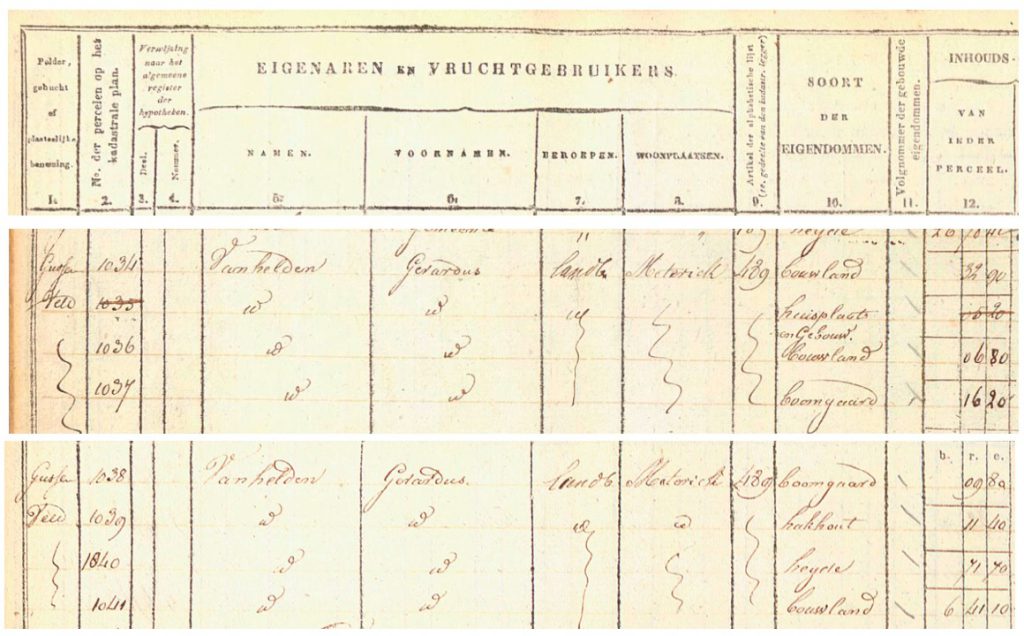 Polder, gehucht of plaatselijke benaming.
No. der perceelen op het kadastrale plan.
Verwijzing naar het algemeene register der hypotheken.
Deel. Nummer.
EIGENAREN EN VRUCHTGEBRUIKERS.
NAMEN. VOORNAMEN. BEROEPEN. WOONPLAATSEN.
Artikel der alphabetische lijst
SOORT DER EIGENDOMMEN.
Volgnommer der gebouwde eigendommen.
INHOUDS-
VAN IEDER PERCEEL.
1. 2. 3. 4. 5. 6. 7. 8. 9. 10. 11. 12.
heyde
1034 Vanhelden Gerardus landb Meterick 489 bouwland 32 90
Veld 1035 id id id huisplaats en Gebouw.
1036 id id bouwland 06 80
1037 id id boomgaard 16 20
b. r. e.
1038 Vanhelden Gerardus. landb Meterick 489 boomgaard 09 80
Veld 1039 id id id id hakhout 11 40
1840 id id heyde 71 70
1041 id id bouwland 6 41 10